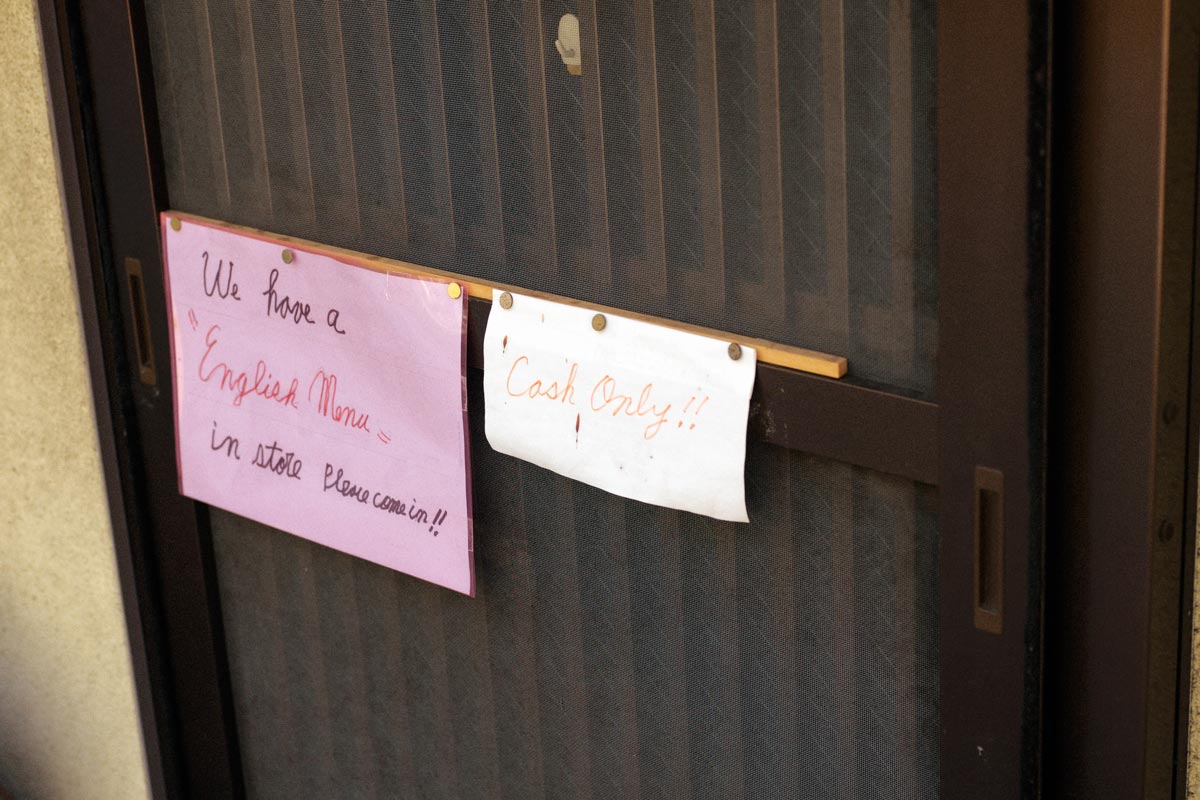 We have a
"English Menu"
in store Please come in!!
Cash Only!!